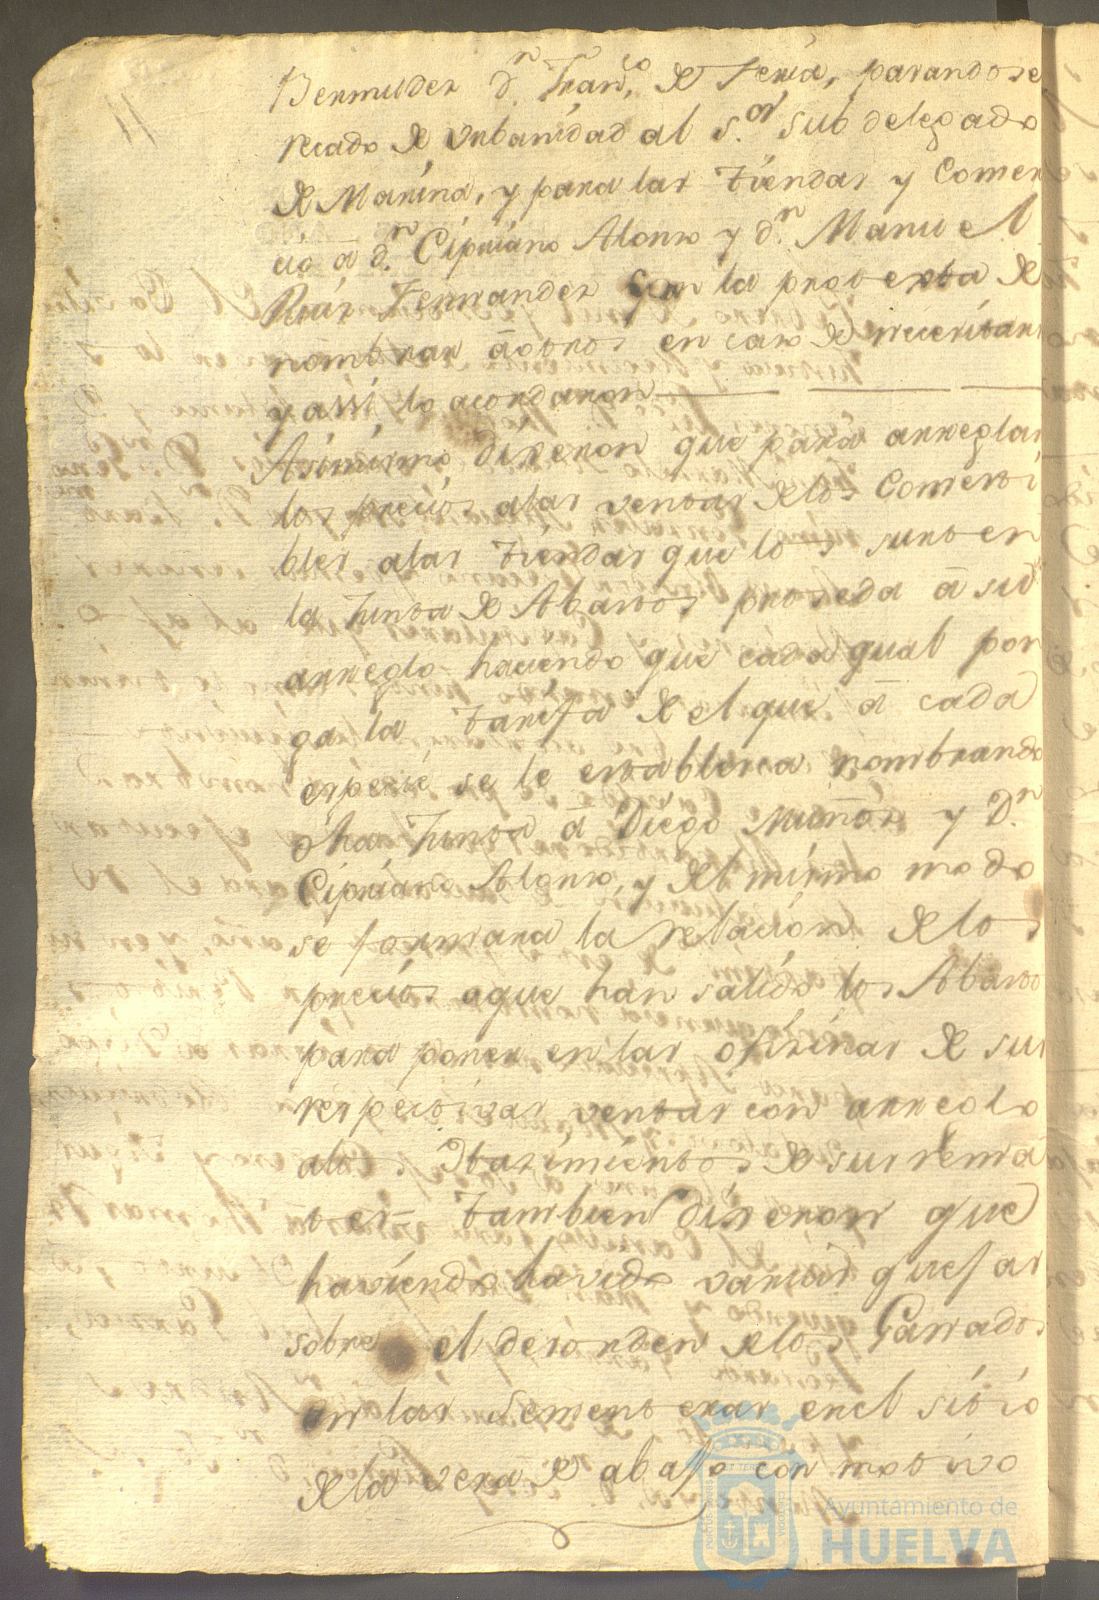 Bermudez d.n Fran.co de Feria, parandose
recado de Urbanidad al s.or sub delegado
de Marina, y para las tiendas y Comer
cio â d.n Cipriano Alonso y d.n Manuel
Ruiz Fernandez con la protexta de
nombrar âotros en caso de necesitarse
y assi lo acordaron
Asimismo dixeron que para arreglar
los precios alas ventas de los Comesti
bles alas tiendas que los surten
la Junta de Abastos proseda â su
arreglo haciendo que cada qual pon
ga la tarifa de el que â cada
especie se le establesca, nombrando
dha Junta â Diego Muñôz y D.n
Cipriano Alonso, y del mismo modo
se formara la relacion de los
precios aque han salido los Abastos
para poner en las ofizinas de sus
respectivas ventas con arreglo
alos Otazimientos de sus rema
tes = tambien dixeron que
haviendo havido varias quejas
sobre el desorden de los Ganados
en las sementeras en el sitio
de la vera de abajo con motivo
Ayuntamiento de
HUELVA